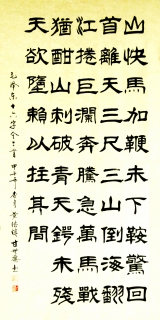 山快馬加鞭未下鞍驚回
首離天三尺三山倒海翻
江捲巨瀾奔騰急萬馬戰
猶酣山刺破青天鍔未殘
天欲墮賴以拄其間
毛澤東十六字令三首